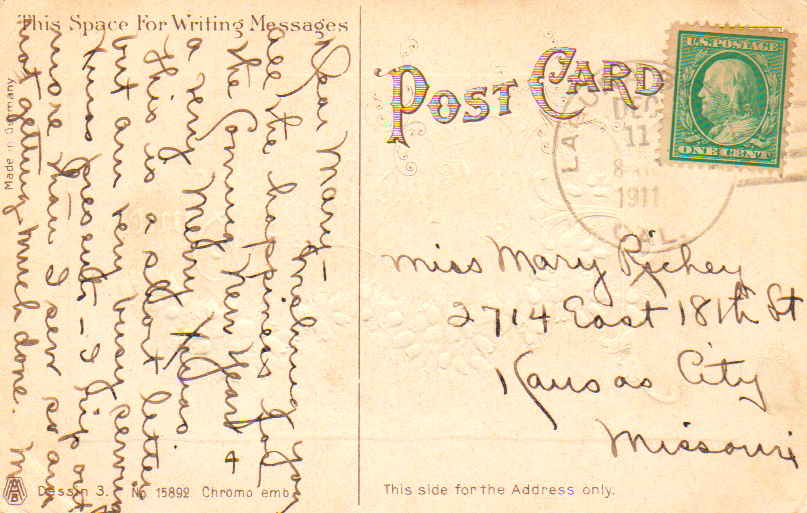 This Space For Writing Messages
Dear Mary -
Wishing you
all the happiness for
the Coming New Year &
a very Merry Xmas
this is a short letter
but am very busy sewing
Xmas presents - I rip out
more than I sew so am
not getting much done. M
Made in Germany
Dessin 3. No 15892 Chromo emb.
POST CARD
U.S. POSTAGE
ONE CENT
DEC
11
8
1911
CAL.
Miss Mary Richey
2714 East 18th St
Kansas City
Missouri
This side for the Address only.